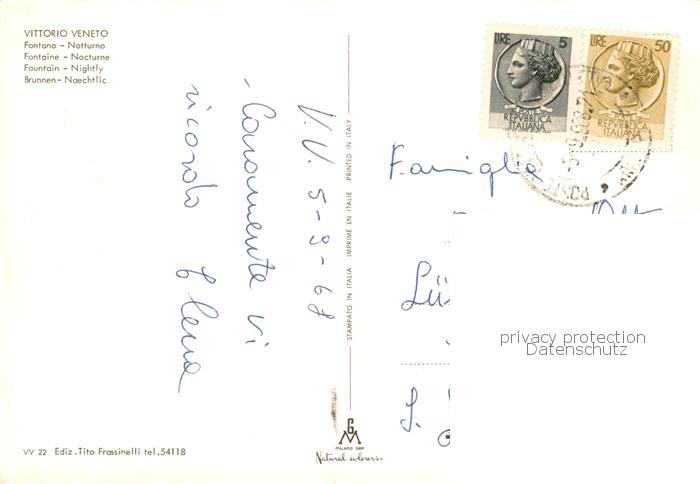 VITTORIO VENETO
Fontana - Notturno
Fontaine - Nocturne
Fountain - Nightly
Brunnen - Naechtlic
V.V. 5-9-68
Caramente vi
ricordo Elena
STAMPATO IN ITALIA IMPRIMÉ EN ITALIE PRINTED IN ITALY
LIRE 5
POSTE
REPVBBLICA
ITALIANA
LIRE 50
POSTE
REPVBBLICA
ITALIANA
POSTE
Famiglia
privacy protection
Datenschutz
MILANO DEP.
Natural colours
VV 22 Ediz. Tito Frassinelli tel. 54118